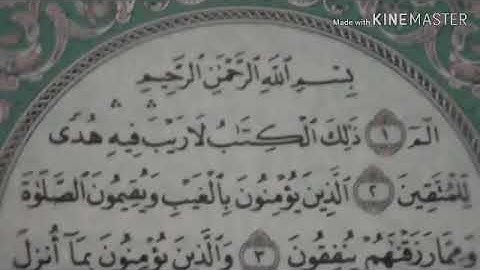 Made with KINEMASTER
بِسْمِ ٱللَّهِ ٱلرَّحْمَٰنِ ٱلرَّحِيمِ
الٓمٓ ١ ذَٰلِكَ ٱلْكِتَٰبُ لَا رَيْبَ ۛ فِيهِ ۛ هُدًى
لِّلْمُتَّقِينَ ٢ ٱلَّذِينَ يُؤْمِنُونَ بِٱلْغَيْبِ وَيُقِيمُونَ ٱلصَّلَوٰةَ
وَمِمَّا رَزَقْنَٰهُمْ يُنفِقُونَ ٣ وَٱلَّذِينَ يُؤْمِنُونَ بِمَآ أُنزِلَ